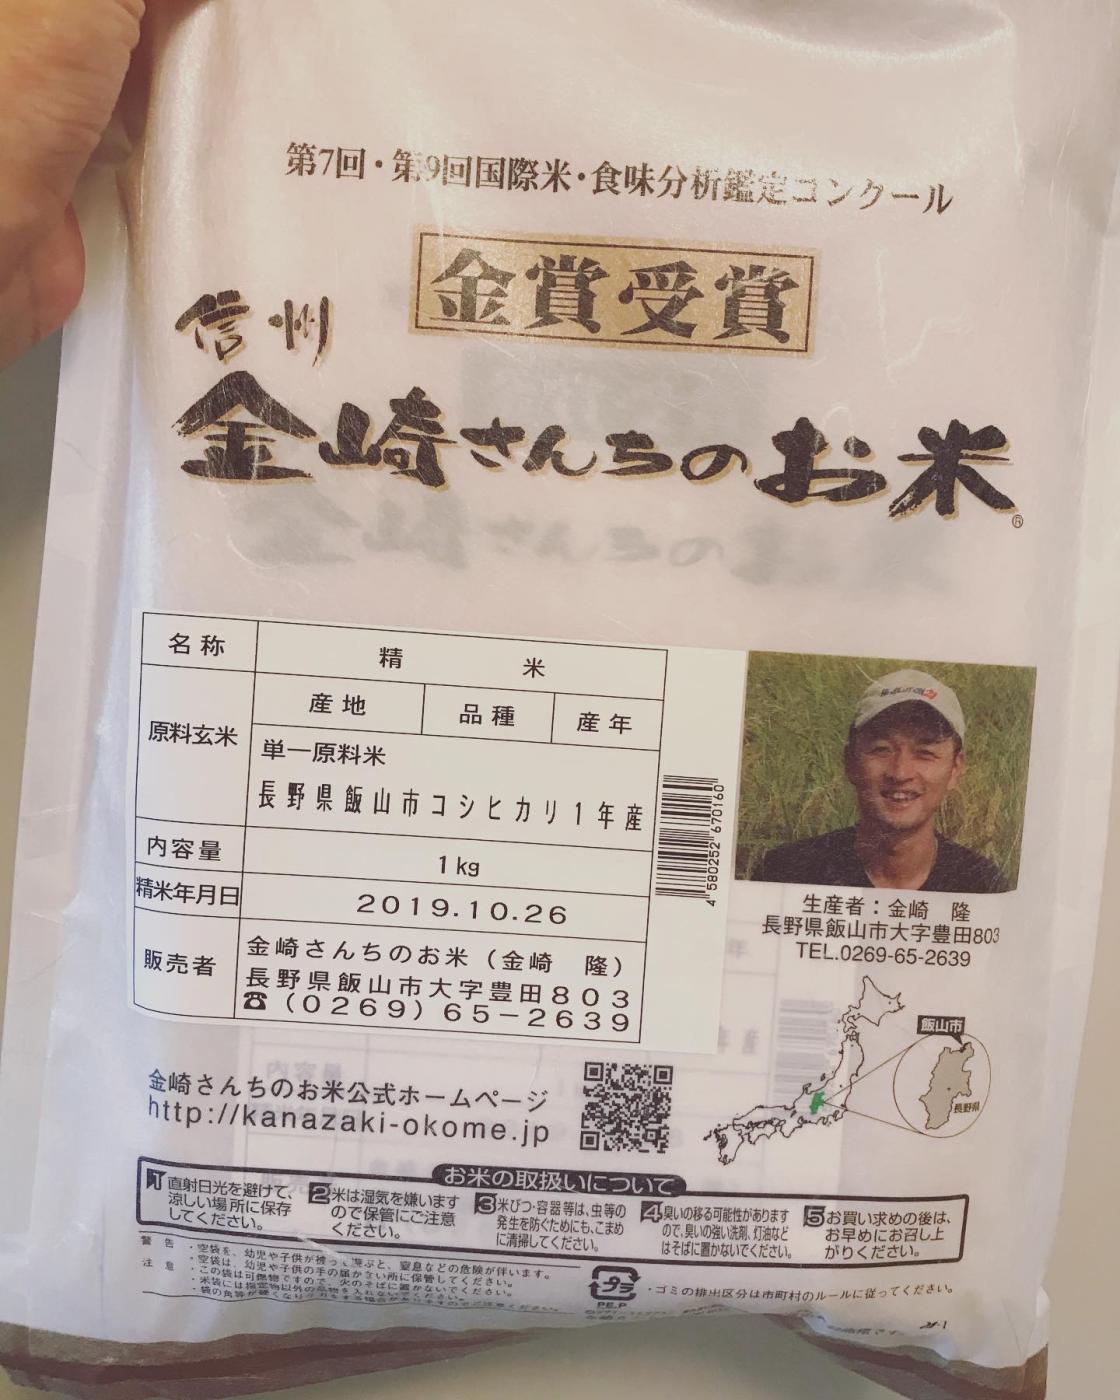 第7回・第9回国際米・食味分析鑑定コンクール
金賞受賞
信州
金崎さんちのお米
®
名称 精米
原料玄米 産地 品種 産年
単一原料米
長野県飯山市コシヒカリ1年産
内容量 1kg
精米年月日 2019.10.26
販売者 金崎さんちのお米（金崎 隆）
長野県飯山市大字豊田803
☎(0269)65-2639
4 580252 670160
生産者：金崎 隆
長野県飯山市大字豊田803
TEL.0269-65-2639
飯山市
長野県
金崎さんちのお米公式ホームページ
http://kanazaki-okome.jp
お米の取扱いについて
1 直射日光を避けて、
涼しい場所に保存
してください。
2 米は湿気を嫌います
ので保管にご注意
ください。
3 米びつ・容器等は、虫等の
発生を防ぐためにも、こまめ
に清掃してください。
4 臭いの移る可能性があります
ので、臭いの強い洗剤、灯油など
はそばに置かないでください。
5 お買い求めの後は、
お早めにお召し上
がりください。
警告
・空袋を、幼児や子供が被っ 遊ぶと、窒息などの危険が伴います。
・空袋は、幼児や子供の手の届かない所に保管してください。
注意
・この袋は可燃物ですので、火のそばに置かないでください。
プラ
PE.P
・ゴミの排出区分は市町村のルールに従ってください。